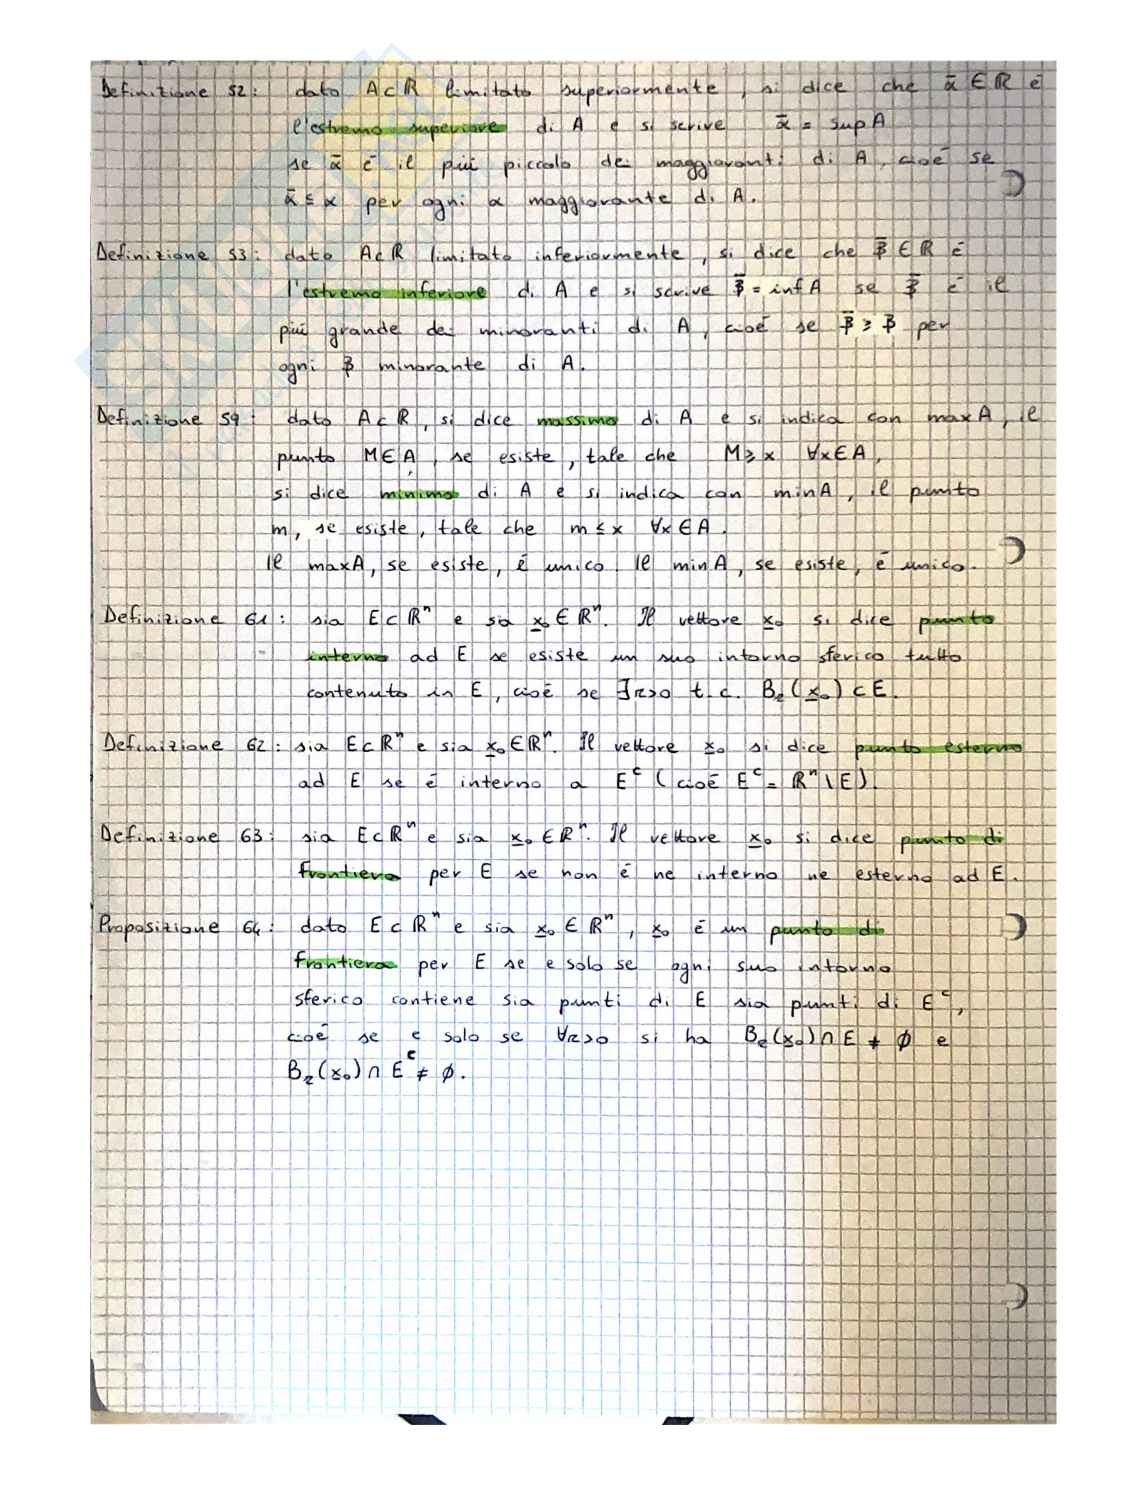 Definizione 52: dato A⊂ℝ limitato superiormente, si dice che ᾱ∈ℝ è
l'estremo superiore di A e si scrive ᾱ = sup A
se ᾱ è il più piccolo dei maggioranti di A, cioè se
ᾱ ≤ α per ogni α maggiorante di A.
Definizione 53: dato A⊂ℝ limitato inferiormente, si dice che β̄∈ℝ è
l'estremo inferiore di A e si scrive β̄ = inf A se β̄ è il
più grande dei minoranti di A, cioè se β̄ ≥ β per
ogni β minorante di A.
Definizione 59: dato A⊂ℝ, si dice massimo di A e si indica con maxA, il
punto M∈A, se esiste, tale che M≥x ∀x∈A,
si dice minimo di A e si indica con minA, il punto
m, se esiste, tale che m≤x ∀x∈A.
Il maxA, se esiste, è unico. Il minA, se esiste, è unico.
Definizione 61: sia E⊂ℝⁿ e sia x₀∈ℝⁿ. Il vettore x₀ si dice punto
interno ad E se esiste un suo intorno sferico tutto
contenuto in E, cioè se ∃r>0 t.c. Bᵣ(x₀)⊂E.
Definizione 62: sia E⊂ℝⁿ e sia x₀∈ℝⁿ. Il vettore x₀ si dice punto esterno
ad E se è interno a Eᶜ (cioè Eᶜ = ℝⁿ\E).
Definizione 63: sia E⊂ℝⁿ e sia x₀∈ℝⁿ. Il vettore x₀ si dice punto di
frontiera per E se non è ne interno ne esterno ad E.
Proposizione 64: dato E⊂ℝⁿ e sia x₀∈ℝⁿ, x₀ è un punto di
frontiera per E se e solo se ogni suo intorno
sferico contiene sia punti di E sia punti di Eᶜ,
cioè se e solo se ∀r>0 si ha Bᵣ(x₀)∩E ≠ ∅ e
Bᵣ(x₀)∩Eᶜ ≠ ∅.